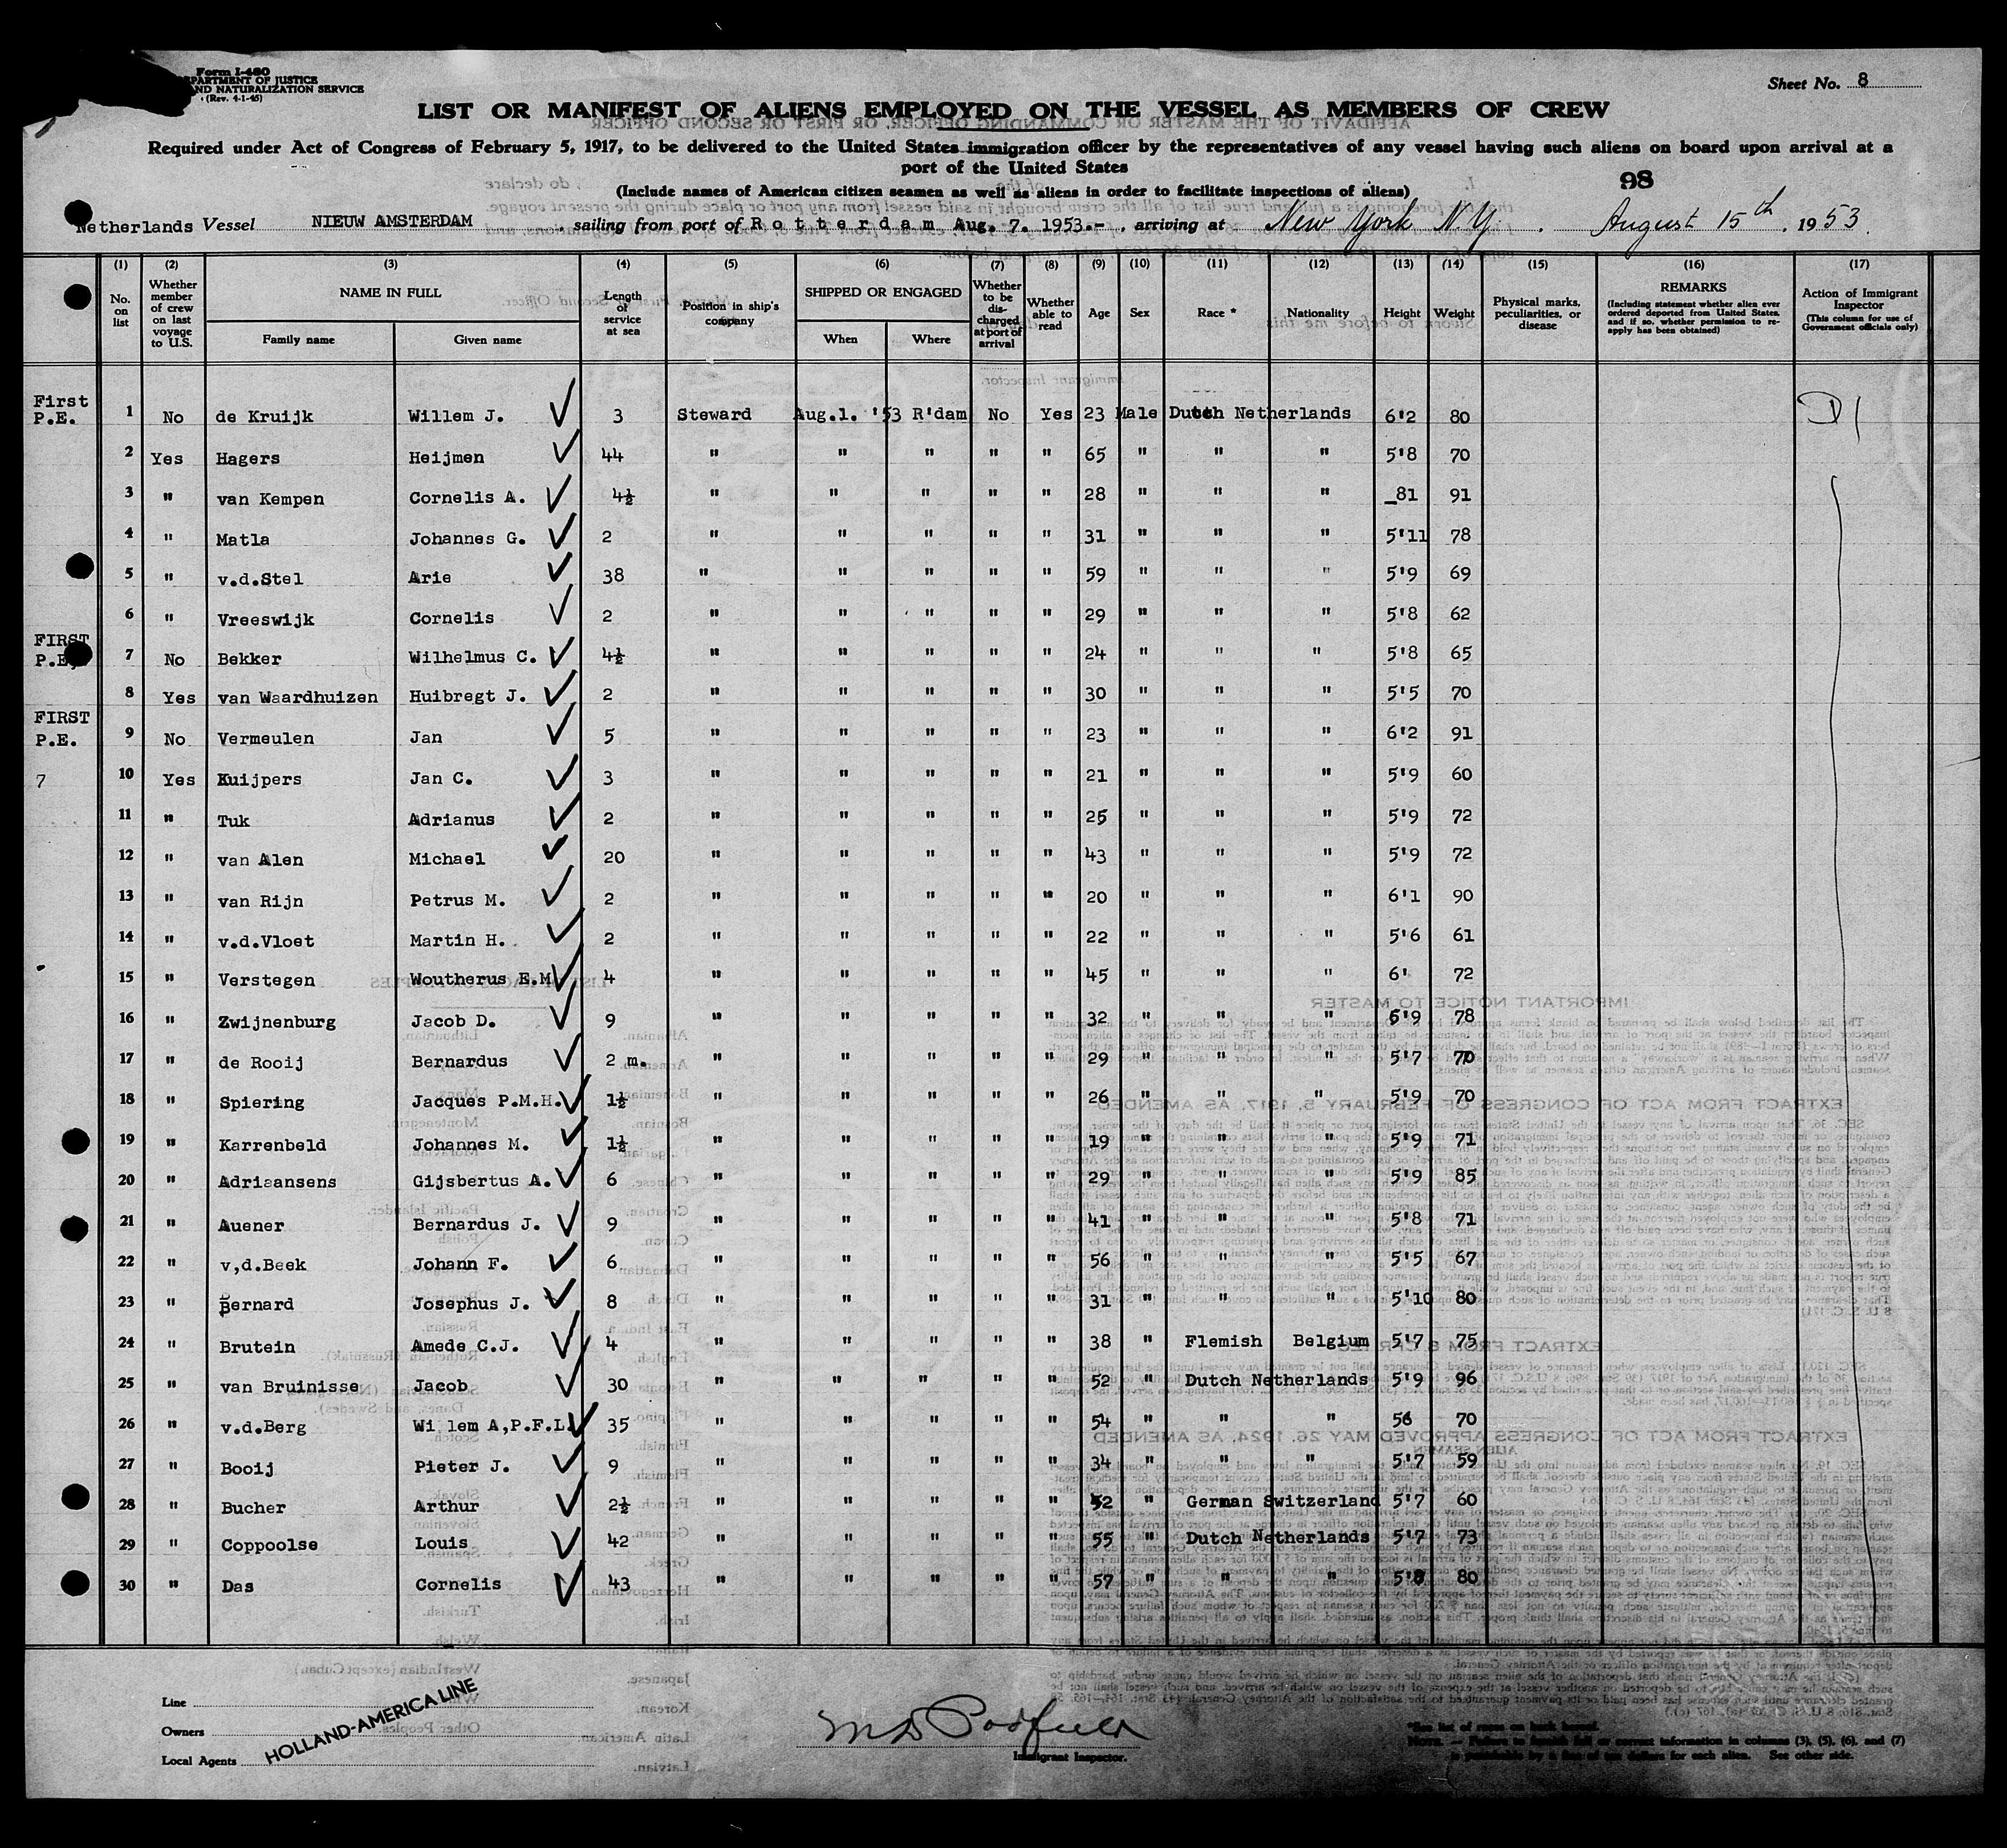 Form I-480
DEPARTMENT OF JUSTICE
AND NATURALIZATION SERVICE
(Rev. 4-1-45)
Sheet No. 8
LIST OR MANIFEST OF ALIENS EMPLOYED ON THE VESSEL AS MEMBERS OF CREW
Required under Act of Congress of February 5, 1917, to be delivered to the United States immigration officer by the representatives of any vessel having such aliens on board upon arrival at a
port of the United States
(Include names of American citizen seamen as well as aliens in order to facilitate inspections of aliens)
98
Netherlands Vessel NIEUW AMSTERDAM, sailing from port of Rotterdam Aug. 7. 1953.-, arriving at New York N.Y. August 15th, 1953.
(1) (2) (3) (4) (5) (6) (7) (8) (9) (10) (11) (12) (13) (14) (15) (16) (17)
No. on list | Whether member of crew on last voyage to U.S. | NAME IN FULL Family name Given name | Length of service at sea | Position in ship's company | SHIPPED OR ENGAGED When Where | Whether to be discharged at port of arrival | Whether able to read | Age | Sex | Race * | Nationality | Height | Weight | Physical marks, peculiarities, or disease | REMARKS (Including statement whether alien ever ordered deported from United States, and if so, whether permission to re-apply has been obtained) | Action of Immigrant Inspector (This column for use of Government officials only)
First P.E. 1 No de Kruijk Willem J. 3 Steward Aug.1. '53 R'dam No Yes 23 Male Dutch Netherlands 6'2 80
2 Yes Hagers Heijmen 44 " " " " " 65 " " " 5'8 70
3 " van Kempen Cornelis A. 4½ " " " " " 28 " " " _81 91
4 " Matla Johannes G. 2 " " " " " 31 " " " 5'11 78
5 " v.d.Stel Arie 38 " " " " " 59 " " " 5'9 69
6 " Vreeswijk Cornelis 2 " " " " " 29 " " " 5'8 62
FIRST P.E. 7 No Bekker Wilhelmus C. 4½ " " " " " 24 " " " 5'8 65
8 Yes van Waardhuizen Huibregt J. 2 " " " " " 30 " " " 5'5 70
FIRST P.E. 9 No Vermeulen Jan 5 " " " " " 23 " " " 6'2 91
7 10 Yes Kuijpers Jan C. 3 " " " " " 21 " " " 5'9 60
11 " Tuk Adrianus 2 " " " " " 25 " " " 5'9 72
12 " van Alen Michael 20 " " " " " 43 " " " 5'9 72
13 " van Rijn Petrus M. 2 " " " " " 20 " " " 6'1 90
14 " v.d.Vloet Martin H. 2 " " " " " 22 " " " 5'6 61
15 " Verstegen Woutherus E.M 4 " " " " " 45 " " " 6' 72
16 " Zwijnenburg Jacob D. 9 " " " " " 32 " " " 5'9 78
17 " de Rooij Bernardus 2 m. " " " " " 29 " " " 5'7 70
18 " Spiering Jacques P.M.H. 1½ " " " " " 26 " " " 5'9 70
19 " Karrenbeld Johannes M. 1½ " " " " " 19 " " " 5'9 71
20 " Adriaansens Gijsbertus A. 6 " " " " " 29 " " " 5'9 85
21 " Auener Bernardus J. 9 " " " " " 41 " " " 5'8 71
22 " v,d.Beek Johann F. 6 " " " " " 56 " " " 5'5 67
23 " Bernard Josephus J. 8 " " " " " 31 " " " 5'10 80
24 " Brutein Amede C.J. 4 " " " " " 38 " Flemish Belgium 5'7 75
25 " van Bruinisse Jacob 30 " " " " " 52 " Dutch Netherlands 5'9 96
26 " v.d.Berg Wi lem A,P.F.L. 35 " " " " " 54 " " " 56 70
27 " Booij Pieter J. 9 " " " " " 34 " " " 5'7 59
28 " Bucher Arthur 2½ " " " " " 52 " German Switzerland 5'7 60
29 " Coppoolse Louis 42 " " " " " 55 " Dutch Netherlands 5'7 73
30 " Das Cornelis 43 " " " " " 57 " " " 5'8 80
Line
Owners
Local Agents
HOLLAND-AMERICA LINE
Immigrant Inspector.
*See list of races on back hereof.
NOTE. — Failure to furnish full or correct information in columns (3), (5), (6), and (7)
is punishable by a fine of ten dollars for each alien. See other side.